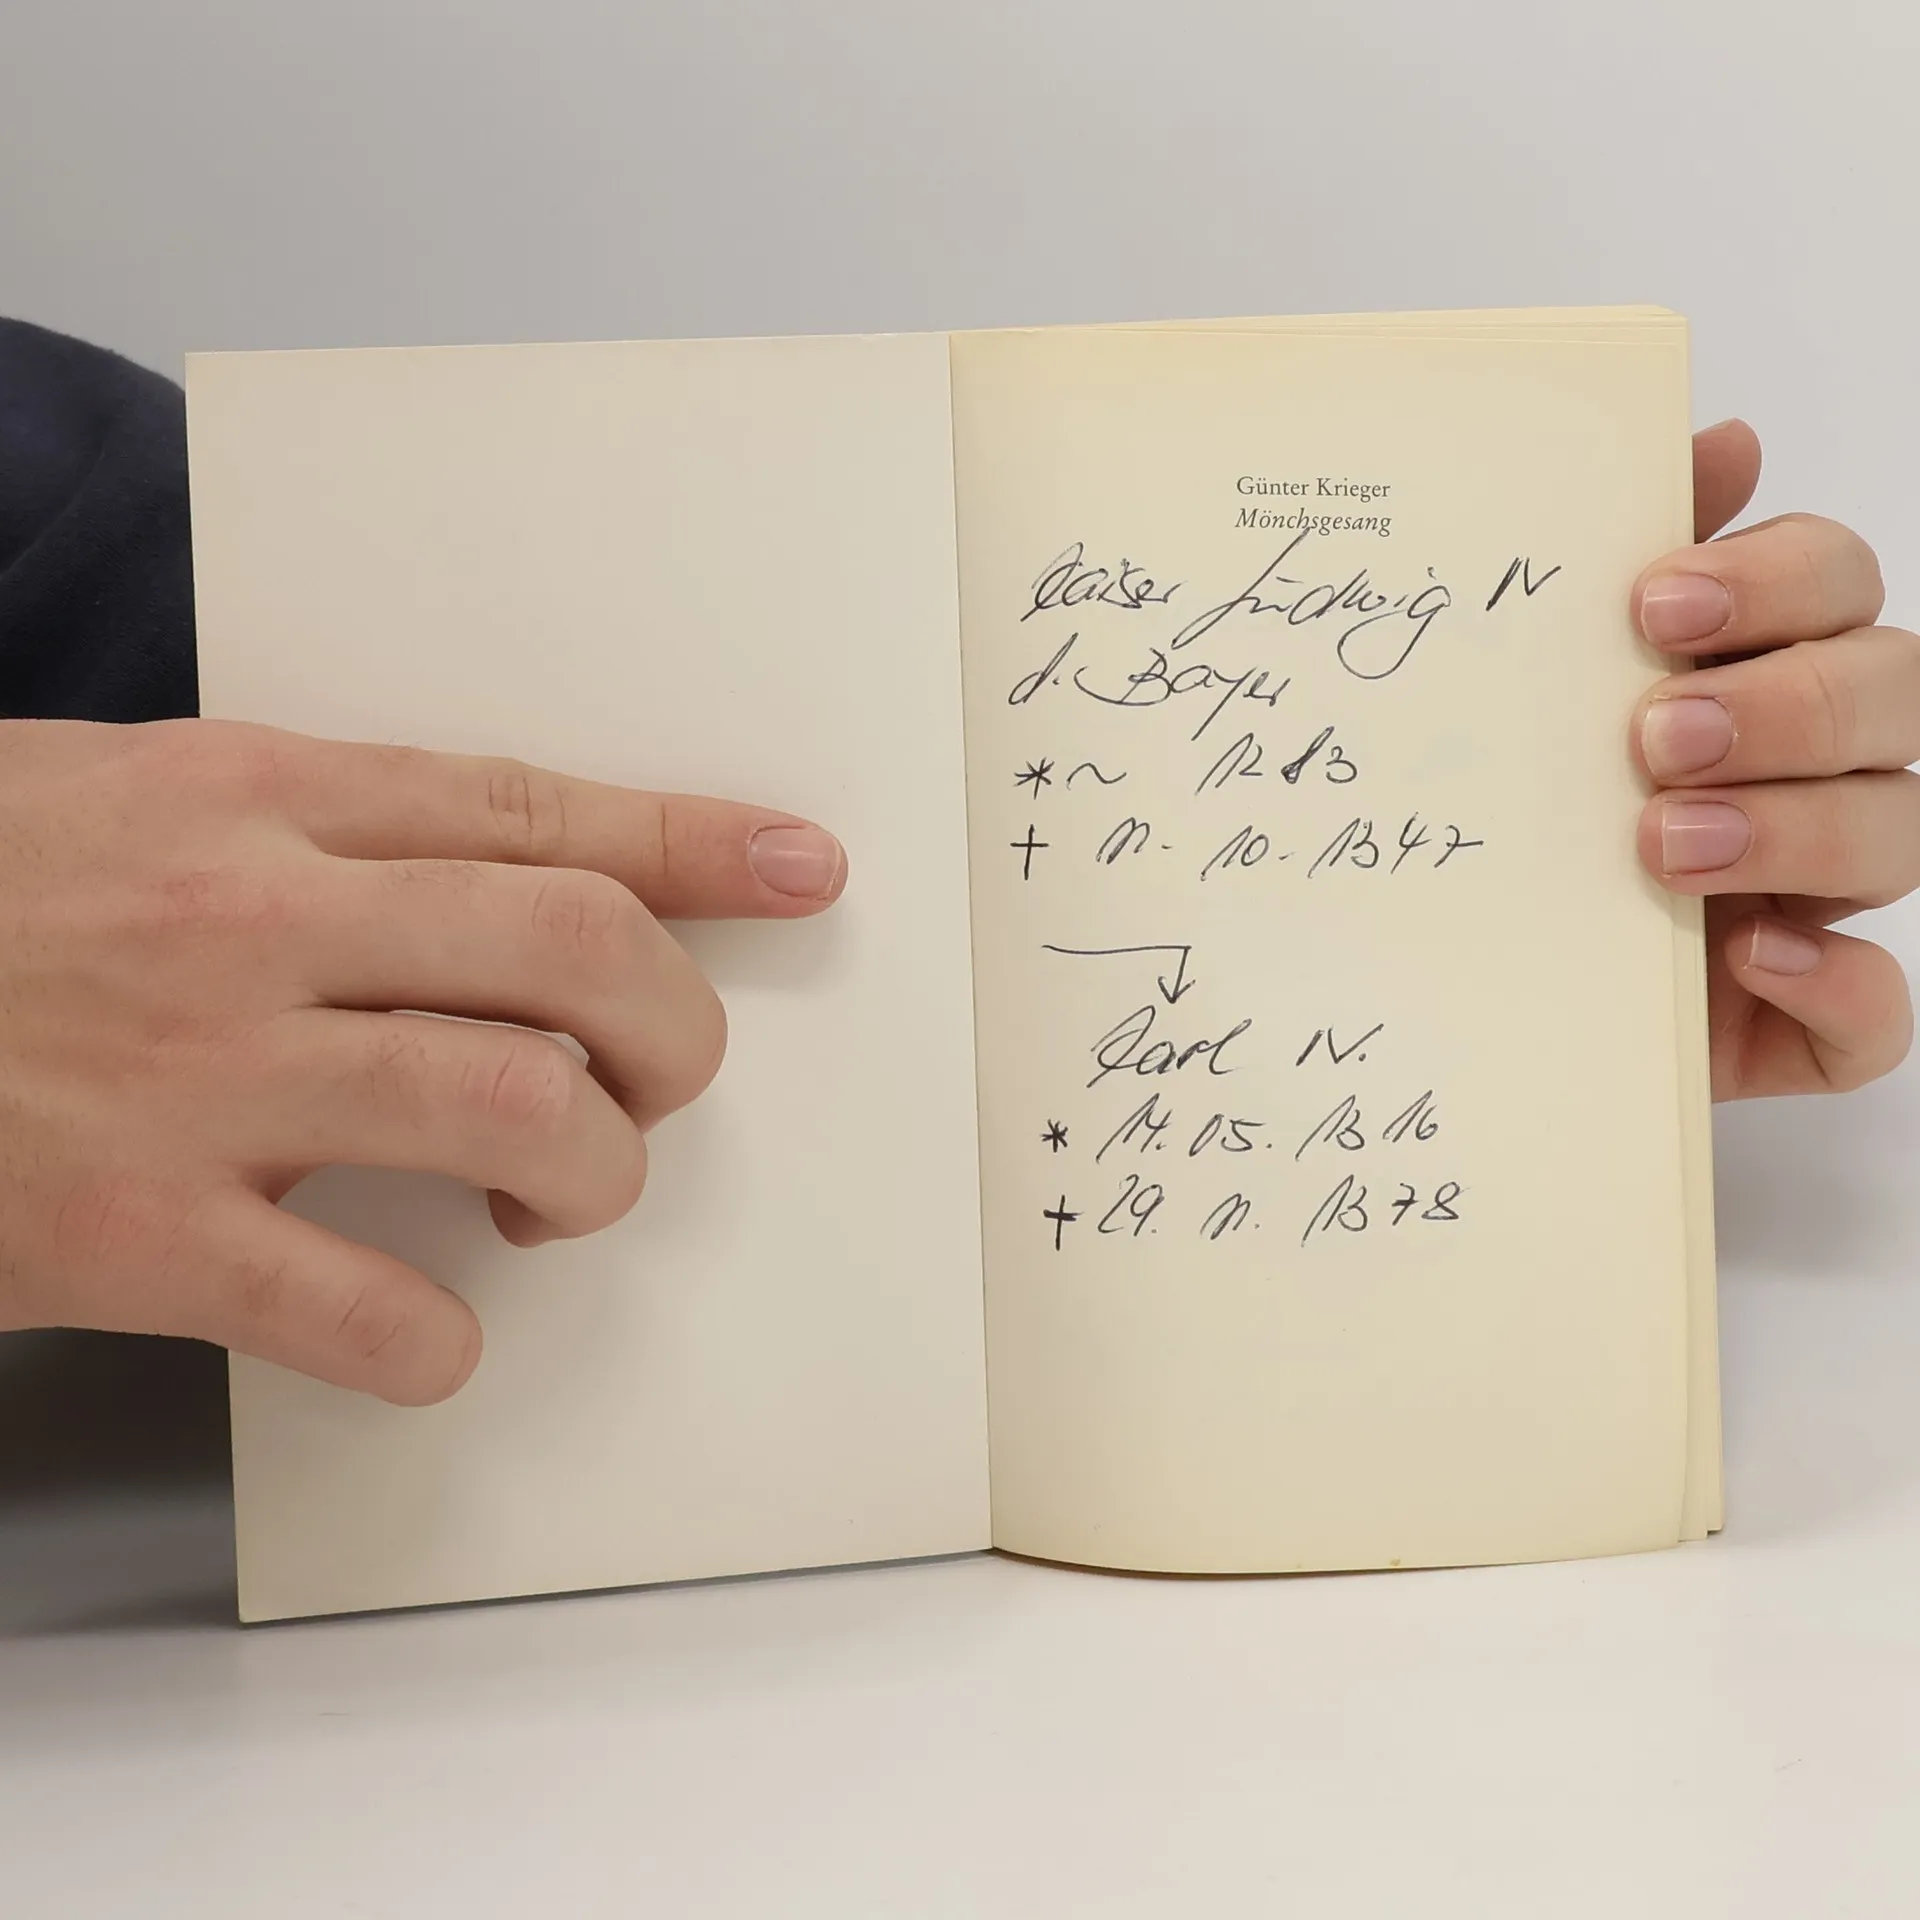 Günter Krieger
Mönchsgesang
Kaiser Ludwig IV
d. Bayer
* ~ 1283
† 11. 10. 1347
Karl IV.
* 14. 05. 1316
† 29. 11. 1378